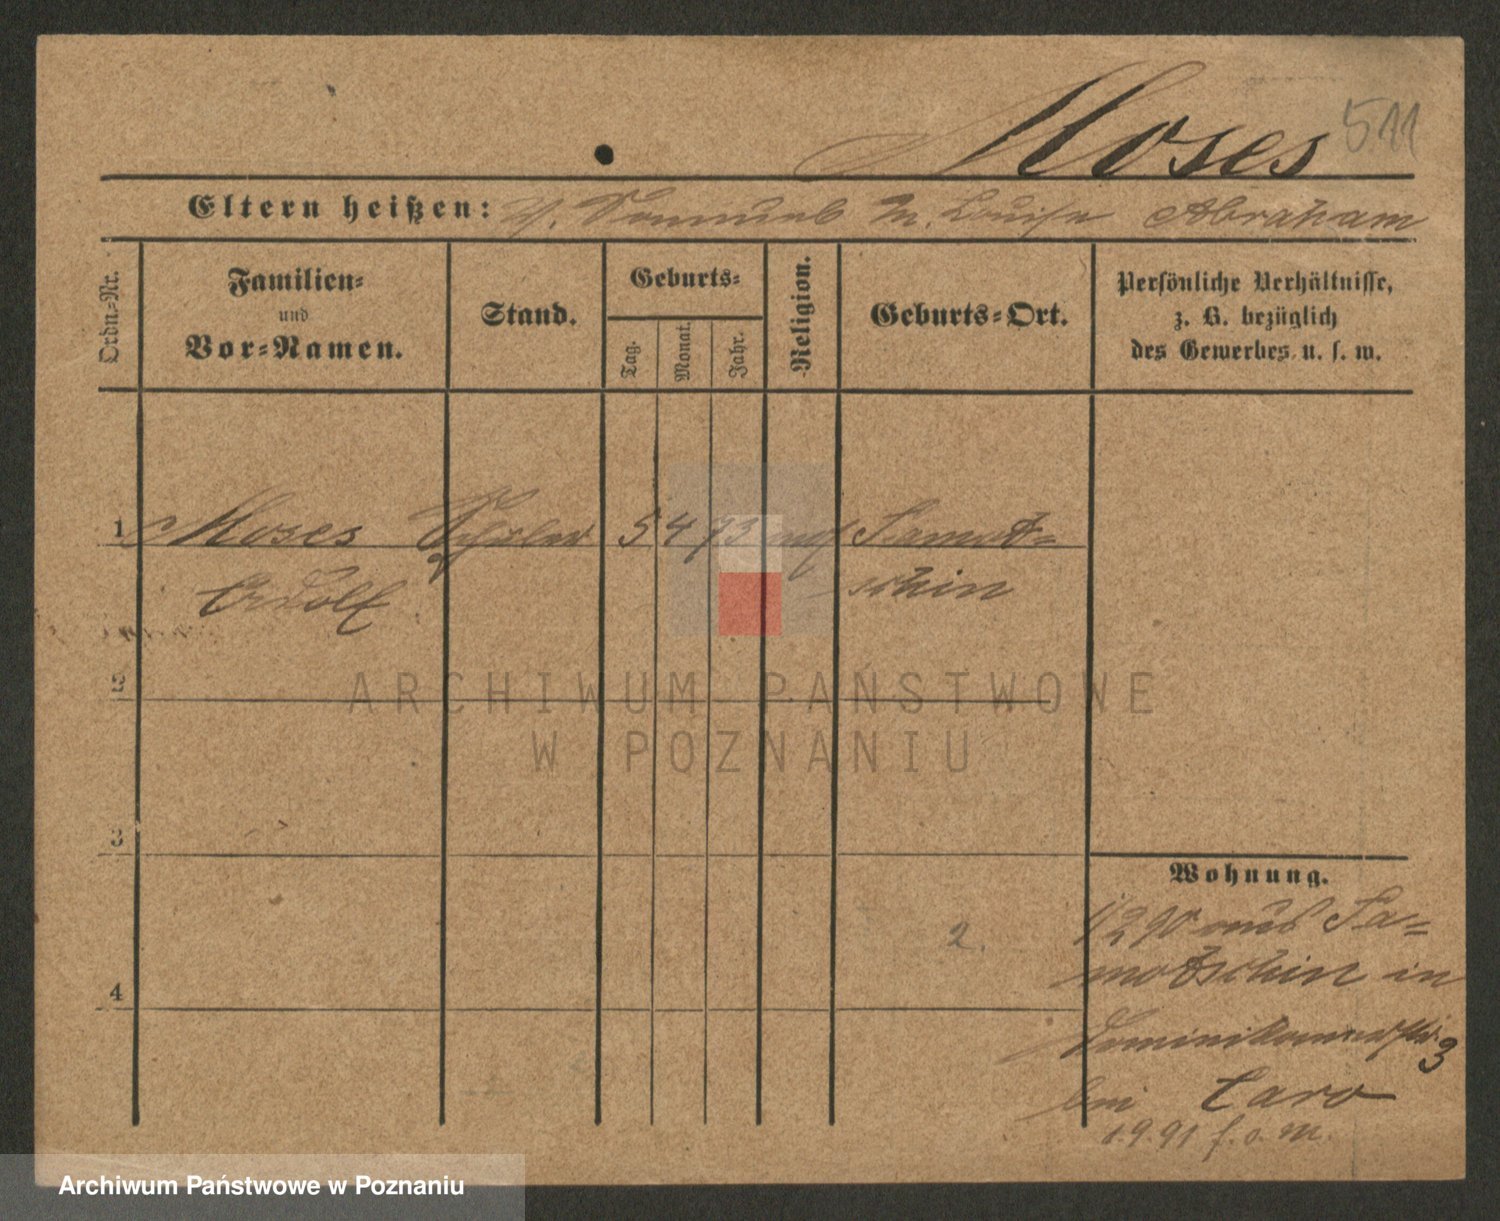 Moses 511
Eltern heißen: V. Samuel M. Louise Abraham
Ordn.-Nr.
Familien-
und
Vor-Namen.
Stand.
Geburts-
Tag.
Monat.
Jahr.
Religion.
Geburts-Ort.
Persönliche Verhältnisse,
z. B. bezüglich
des Gewerbes u. s. w.
1 Moses Schüler 5 4 73 mos Samot-
Adolf schin
2
3
4
Wohnung.
2.
1/2 90 aus Sa-
motschin in
Dominikanerstr. 3
bei Caro
1.9.91 f. o. M.
ARCHIWUM PAŃSTWOWE
W POZNANIU
Archiwum Państwowe w Poznaniu